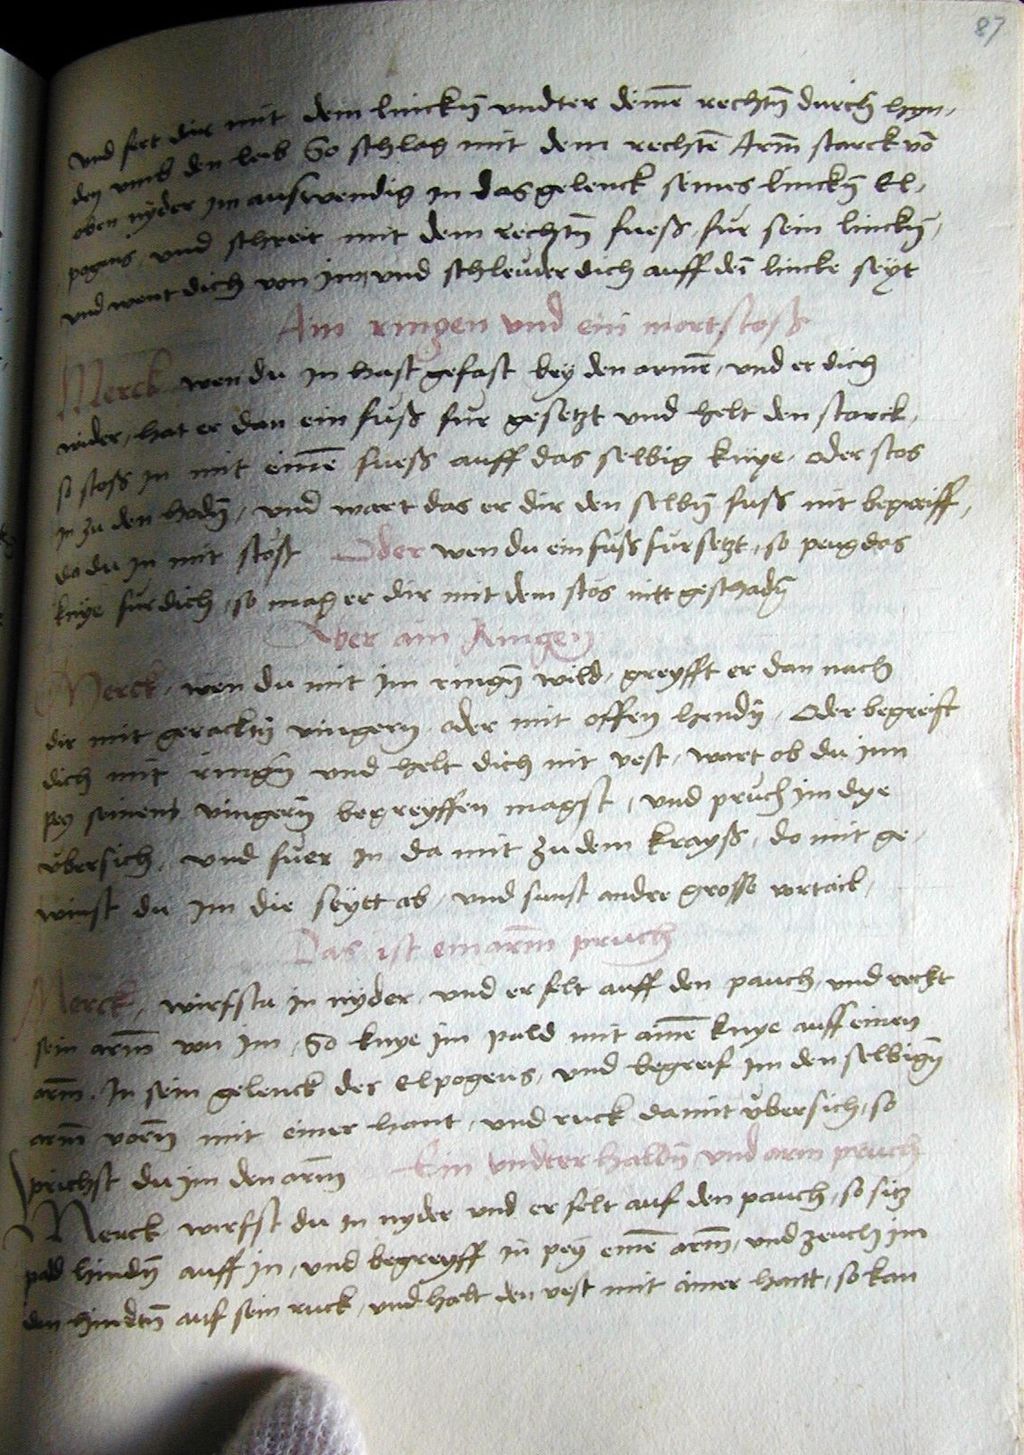 87
und fert dir mit dem linckñ undter deinẽ rechtñ durch hyn,
den umb den leib So schlag mit dem rechtẽ Arm̃ starck võ
oben nÿder im auswendig in das gelenck seines linckñ El,
pogens, und schreit mit dem rechtñ fuess fur sein linckñ,
und went dich von im, und schleuder dich auff dein lincke seyt
Ain ringen und ein mortstoß
Merck wen du in hast gefast bey den armẽ, und er dich
wider, hat er dan ein fuß fur gesetzt und helt den starck,
so stoß in mit einẽ fuess auff das selbig knÿe, oder stos
in zu den hodñ, und wart das er dir den selbñ fuß nit begreiff,
do du in mit stost Oder wen du ein fuß fursetzt, so peug das
knÿe fur dich, so mag er dir mit dem stos nitt geschadñ
Aber ain Ringen
Merck, wen du mit im ringñ wild, greyfft er dan nach
dir mit geracktñ vingern oder mit offen hendñ, Oder begreift
dich mit ringñ und helt dich nit vest, wart ob du inn
pey seinem vingerñ begreyffen magst, und pruch im dye
ubersich, und fuer in da mit zu dem krayß, do mit ge,
winst du im die seÿtt ab, und sunst ander grosse vortail,
Das ist ein arm̃ pruch
Merck, wirfstu in nÿder, und er felt auff den pauch, und reckt
sein arm̃ von im, So knye im pald mit ainẽ knye auff einen
arm̃. In sein gelenck des Elpogens, und begreif im den selbigñ
arm̃ vorñ mit einer hant, und ruck damit ubersich, so
prichst du im den arm̃ Ein undter haldñ und arm pruch
Merck wirfst du in nyder und er felt auf den pauch, so sitz
pald hindñ auff in, und begreyff in peÿ einẽ arm̃, und zeuch im
den hindtñ auf sein ruck, und halt den vest mit ainer hantt, so kan